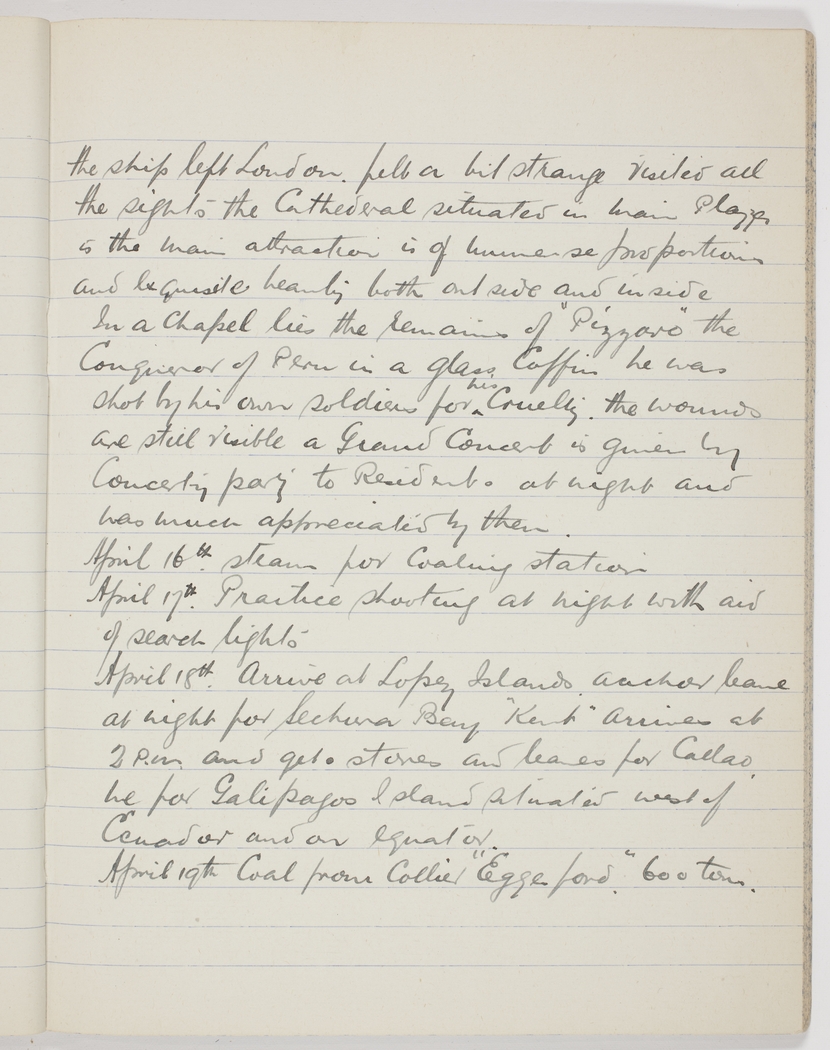 the ship left London. felt a bit strange visited all
the sights the Cathederal situated in main Plazza
is the main attraction is of immense proportions
and Exquisite beauty both outside and inside
In a Chapel lies the remains of "Pizzaro" the
Conqueror of Peru in a glass Coffin he was
shot by his own soldiers for his Cruelty. the wounds
are still visible a Grand Concert is given by
Concerty party to Residents at night and
was much appreciated by them.
April 16th. steam for Coaling station
April 17th. Practice shooting at night with aid
of search lights
April 18th. Arrive at Lopez Islands. anchor leave
at night for Sechura Bay "Kent" arrives at
2 P.m. and gets stores and leaves for Callao.
we for Galipagos Island situated west of
Ecuador and on Equator.
April 19th Coal from Collier "Eggesford." 600 tons.